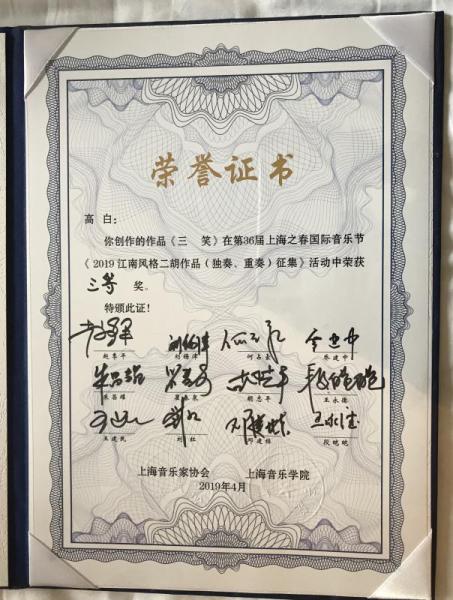 荣誉证书
高 白：
你创作的作品《三 笑》在第36届上海之春国际音乐节
《2019江南风格二胡作品（独奏、重奏）征集》活动中荣获
三等 奖。
特颁此证！
赵季平 刘锡津 何占豪 乔建中
朱昌耀 胡志平 王永德
王建民 刘红 邓建栋 段皑皑
上海音乐家协会 上海音乐学院
2019年4月